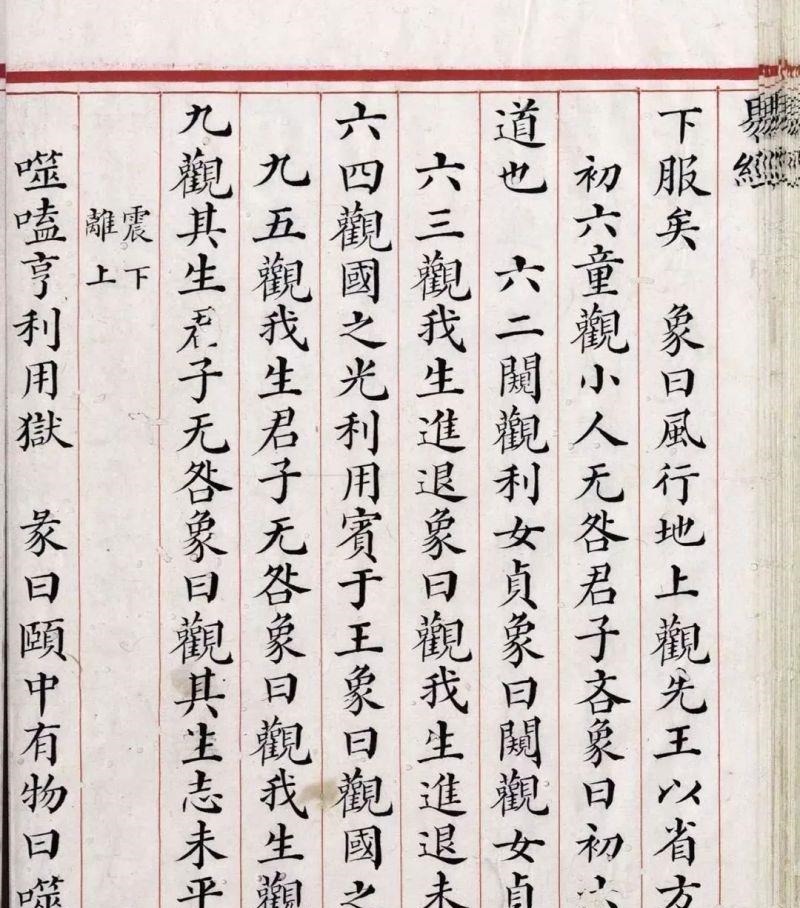 易經
下服矣　象曰風行地上觀先王以省方
初六童觀小人无咎君子吝象曰初六
道也　六二闚觀利女貞象曰闚觀女貞
六三觀我生進退象曰觀我生進退未
六四觀國之光利用賓于王象曰觀國之
九五觀我生君子无咎象曰觀我生觀
九觀其生君子无咎象曰觀其生志未平
震下
離上
噬嗑亨利用獄　彖曰頤中有物曰噬